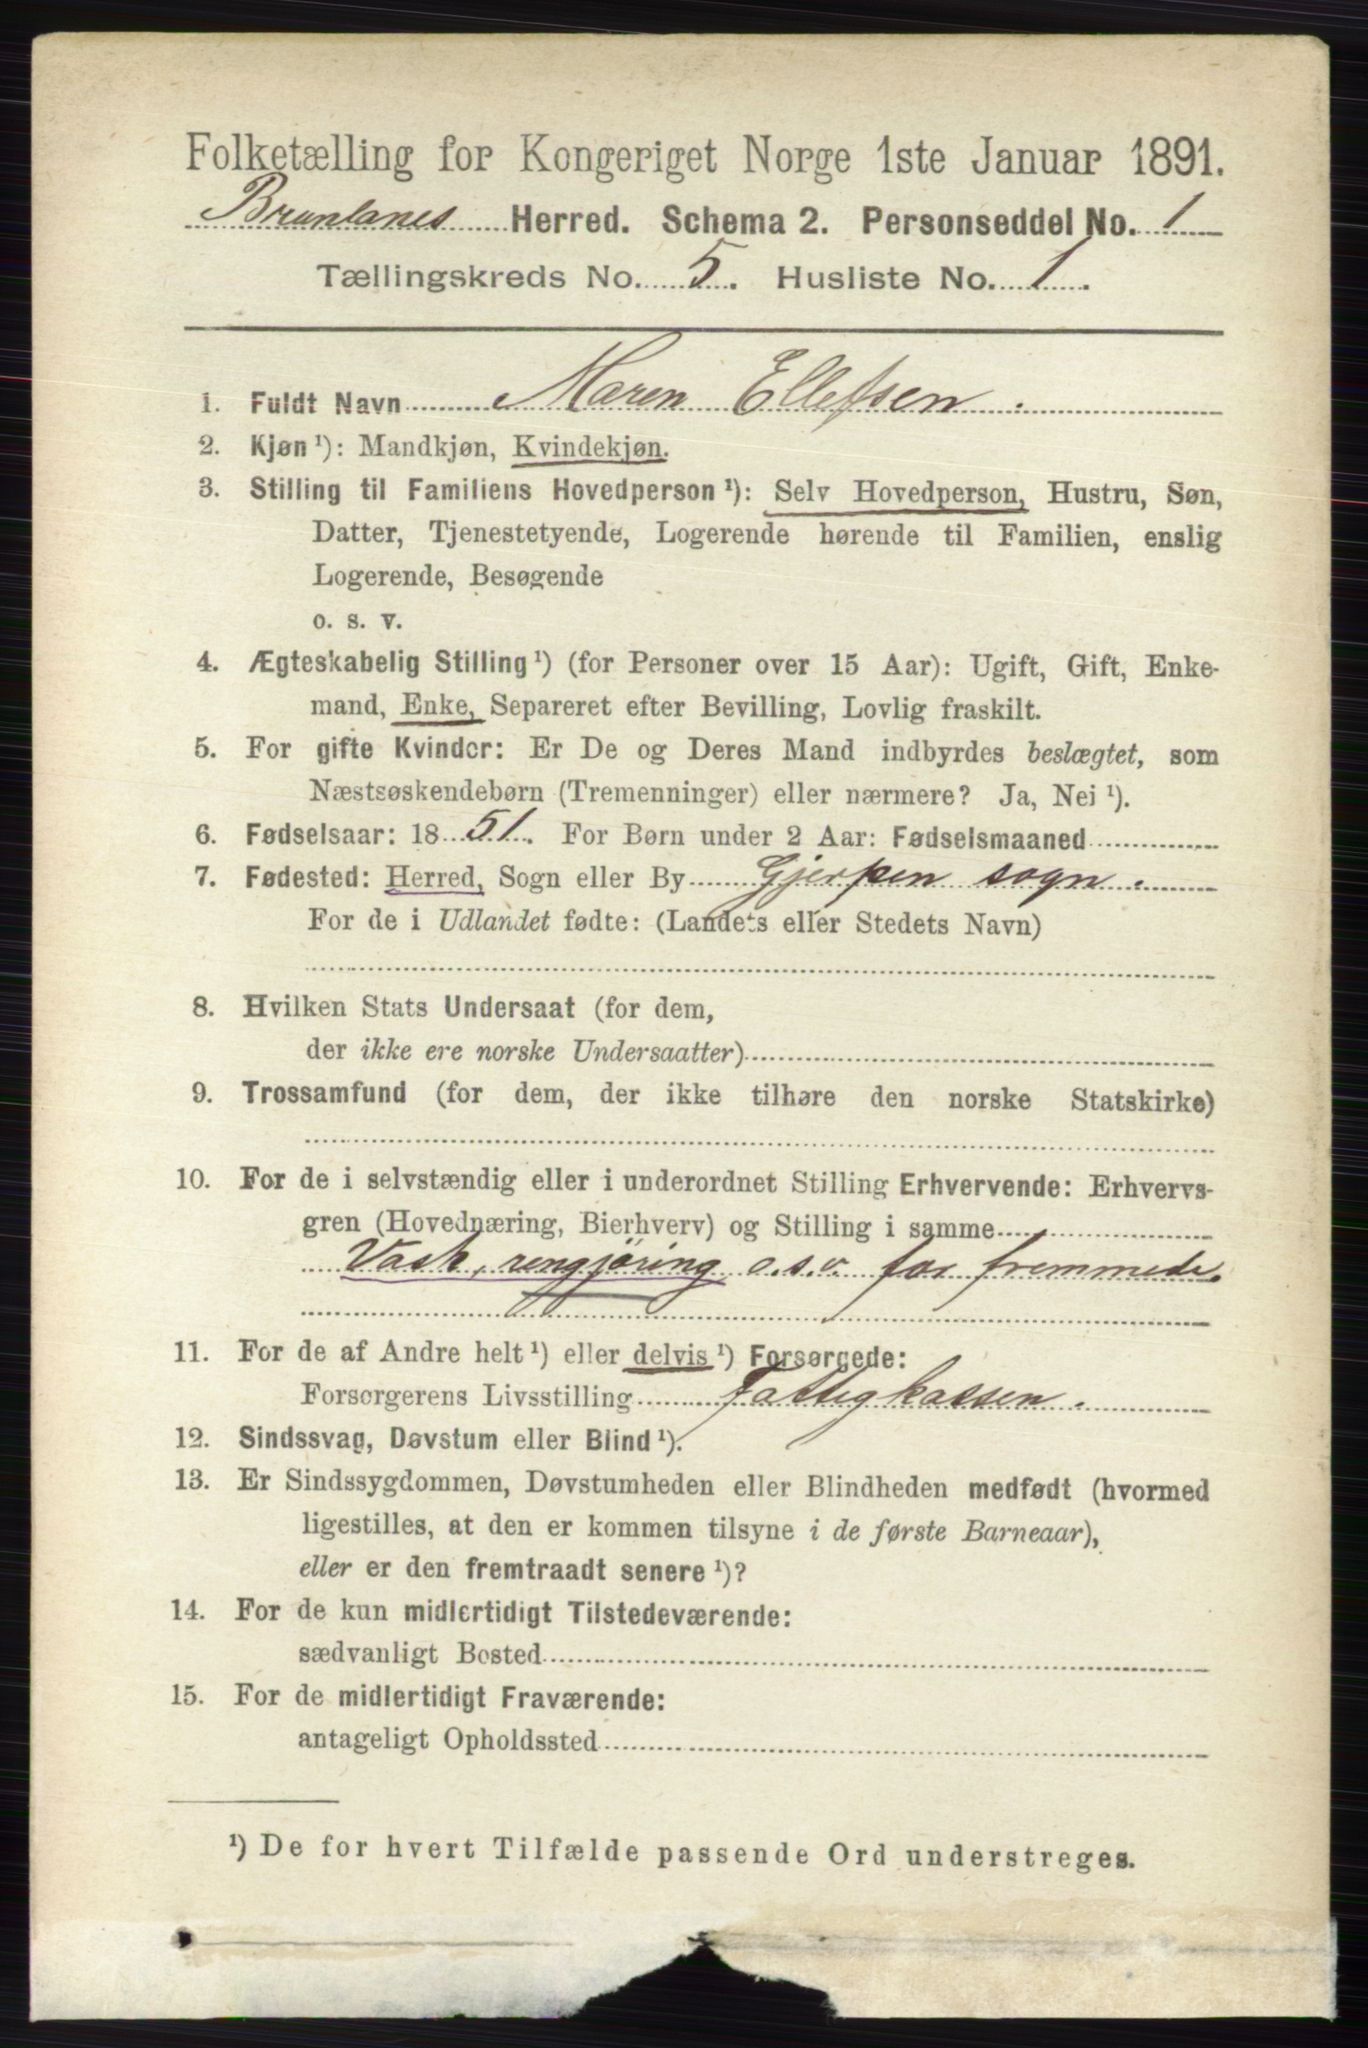 Folketælling for Kongeriget Norge 1ste Januar 1891.
Brunlanes Herred. Schema 2. Personseddel No. 1
Tællingskreds No. 5. Husliste No. 1.
1. Fuldt Navn Maren Ellefsen.
2. Kjøn ¹): Mandkjøn, Kvindekjøn.
3. Stilling til Familiens Hovedperson ¹): Selv Hovedperson, Hustru, Søn,
Datter, Tjenestetyende, Logerende hørende til Familien, enslig
Logerende, Besøgende
o. s. v.
4. Ægteskabelig Stilling ¹) (for Personer over 15 Aar): Ugift, Gift, Enke-
mand, Enke, Separeret efter Bevilling, Lovlig fraskilt.
5. For gifte Kvinder: Er De og Deres Mand indbyrdes beslægtet, som
Næstsøskendebørn (Tremenninger) eller nærmere? Ja, Nei ¹).
6. Fødselsaar: 1851. For Børn under 2 Aar: Fødselsmaaned
7. Fødested: Herred, Sogn eller By Gjerpen sogn.
For de i Udlandet fødte: (Landets eller Stedets Navn)
8. Hvilken Stats Undersaat (for dem,
der ikke ere norske Undersaatter)
9. Trossamfund (for dem, der ikke tilhøre den norske Statskirke)
10. For de i selvstændig eller i underordnet Stilling Erhvervende: Erhvervs-
gren (Hovednæring, Bierhverv) og Stilling i samme
Vask, rengjøring o.s.v. for fremmede.
11. For de af Andre helt ¹) eller delvis ¹) Forsørgede:
Forsørgerens Livsstilling Fattigkassen.
12. Sindssvag, Døvstum eller Blind ¹).
13. Er Sindssygdommen, Døvstumheden eller Blindheden medfødt (hvormed
ligestilles, at den er kommen tilsyne i de første Barneaar),
eller er den fremtraadt senere ¹)?
14. For de kun midlertidigt Tilstedeværende:
sædvanligt Bosted
15. For de midlertidigt Fraværende:
antageligt Opholdssted
¹) De for hvert Tilfælde passende Ord understreges.